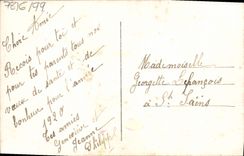 7E16/79
Chère Amie
Reçois pour toi et
pour tes parents tous nos
vœux de santé et de
bonheur pour l'année
1920
Tes amies
Geneviève
Jeanne
Mademoiselle
Georgette Lefrançois
à St Saëns